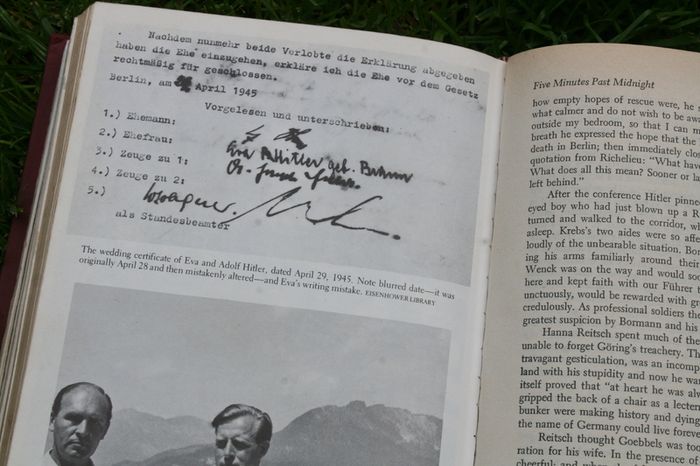 Nachdem nunmehr beide Verlobte die Erklärung abgegeben
haben die Ehe einzugehen, erkläre ich die Ehe vor dem Gesetz
rechtmäßig für geschlossen.
Berlin, am April 1945
Vorgelesen und unterschrieben:
1.) Ehemann:
2.) Ehefrau: Eva Hitler geb. Braun
3.) Zeuge zu 1: Dr. Joseph
4.) Zeuge zu 2:
5.)
als Standesbeamter
The wedding certificate of Eva and Adolf Hitler, dated April 29, 1945. Note blurred date—it was
originally April 28 and then mistakenly altered—and Eva's writing mistake. EISENHOWER LIBRARY
Five Minutes Past Midnight
how empty hopes of rescue were, he
what calmer and do not wish to be
outside my bedroom, so that I can
breath he expressed the hope that the
death in Berlin; then immediately
quotation from Richelieu: "What
What does all this mean? Sooner or
left behind."
After the conference Hitler pinned
eyed boy who had just blown up a
turned and walked to the corridor,
asleep. Krebs's two aides were so
loudly of the unbearable situation.
ing his arms familiarly around their
Wenck was on the way and would
here and kept faith with our Führer
unctuously, would be rewarded with
credulously. As professional soldiers
greatest suspicion by Bormann and his
Hanna Reitsch spent much of the
unable to forget Göring's treachery.
travagant gesticulation, was an
land with his stupidity and now he
itself proved that "at heart he was
gripped the back of a chair as a
bunker were making history and
the name of Germany could live
Reitsch thought Goebbels was too
ration for his wife. In the presence of
cheerful;